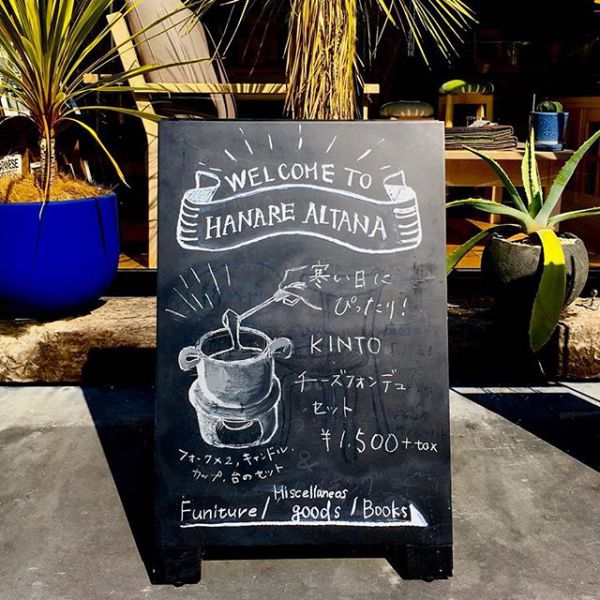 WELCOME TO
HANARE ALTANA
寒い日に
ぴったり!
KINTO
チーズフォンデュ
セット
¥1,500+tax
フォーク×2,キャンドル,
カップ,台のセット
&
Miscellaneas
Funiture/ goods / Books